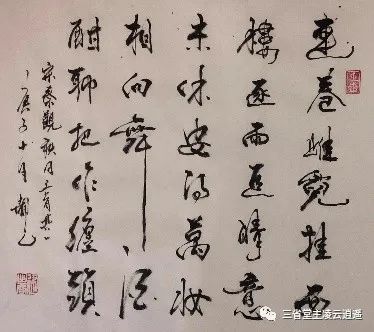 連卷雌霓挂西
樓逐雨追晴意
未休安得萬妝
相向舞酒
酣聊把作纏頭
宋秦觀秋日三首其一
庚子十月
三省堂主凌云逍遥